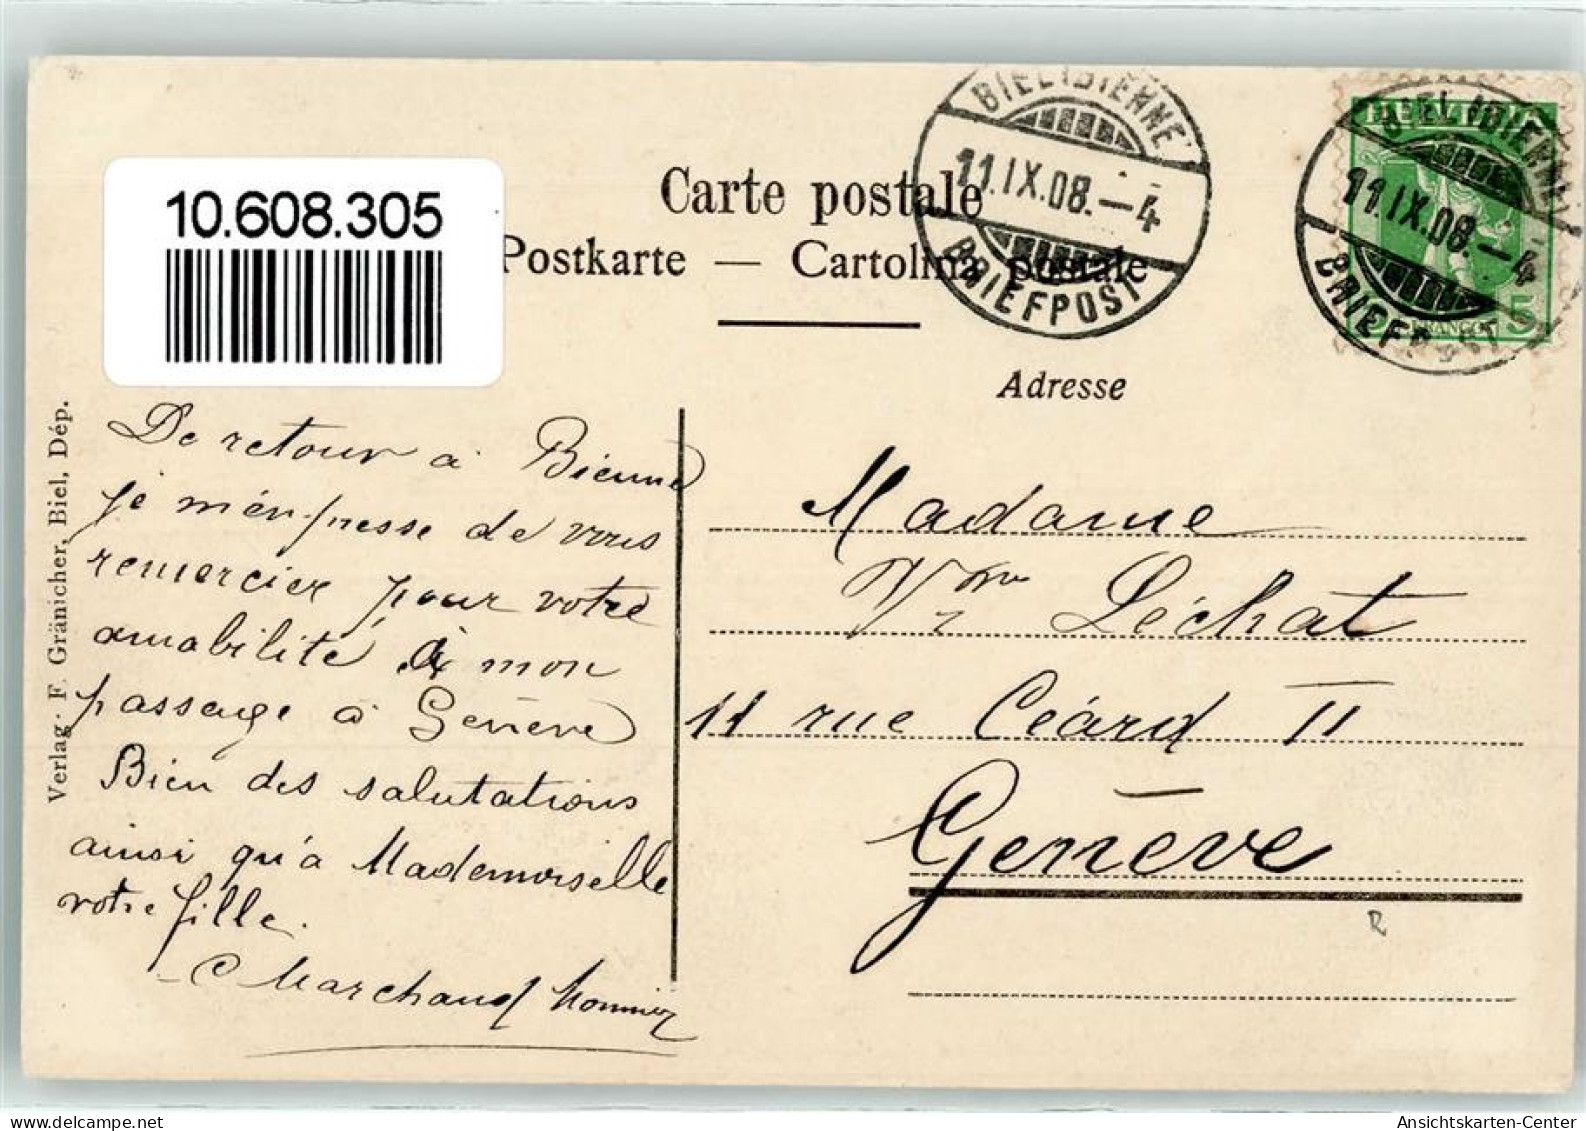 10.608.305
Carte postale
Postkarte — Cartolina postale
BIEL (BIENNE)
11.IX.08.–4
BRIEFPOST
HELVETIA
BIEL (BIENNE)
11.IX.08.–4
BRIEFPOST
5 FRANCO 5
Adresse
De retour à Bienne
je m'en-presse de vous
remercier pour votre
amabilité à mon
passage à Genève
Bien des salutations
ainsi qu'à Mademoiselle
votre fille.
Marchand
Madame
Léchat
11 rue Céard II
Genève
Verlag F. Gränicher, Biel, Dép.
Ansichtskarten-Center